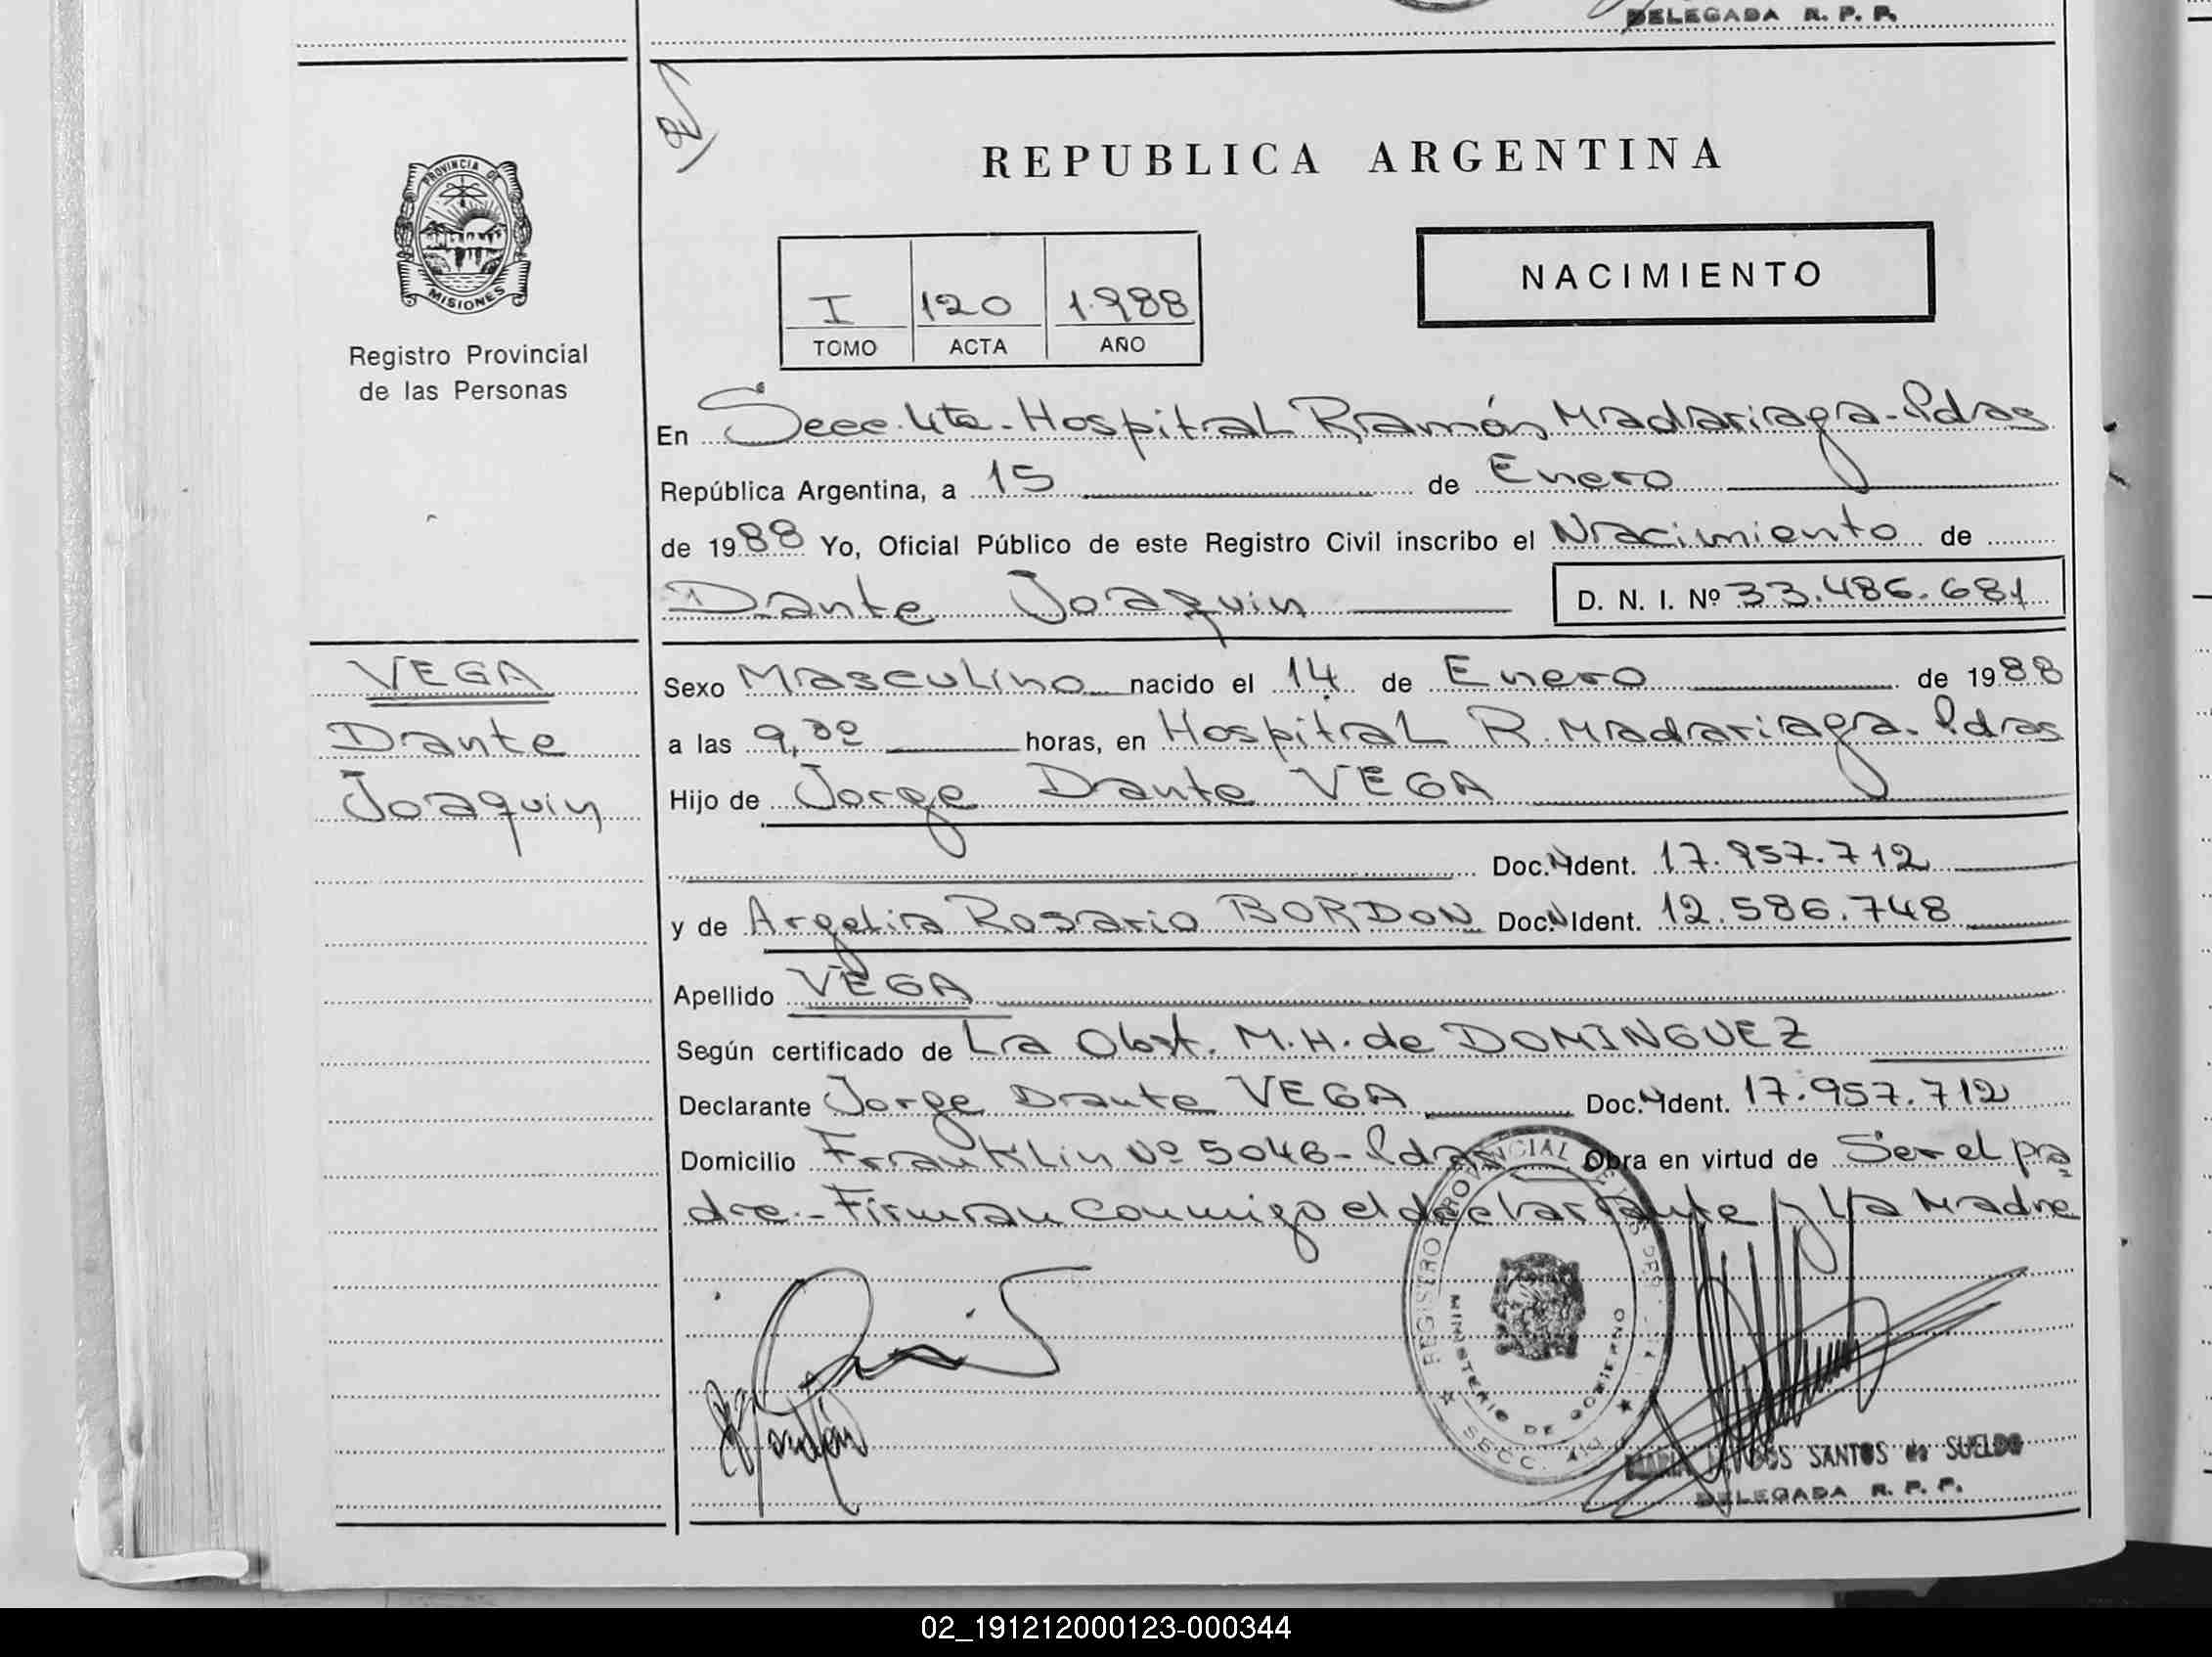 DELEGADA R. P. P.
PROVINCIA DE
MISIONES
Registro Provincial
de las Personas
REPUBLICA ARGENTINA
NACIMIENTO
I 120 1.988
TOMO ACTA AÑO
En Secc. 4ta - Hospital Ramón Madariaga - Pdas
República Argentina, a 15 de Enero
de 1988 Yo, Oficial Público de este Registro Civil inscribo el Nacimiento de
Dante Joaquin D. N. I. Nº 33.486.681
VEGA
Dante
Joaquin
Sexo Masculino nacido el 14 de Enero de 1988
a las 9,30 horas, en Hospital R. Madariaga. Pdas
Hijo de Jorge Dante VEGA
Doc. N Ident. 17.957.712
y de Argelia Rosario BORDON Doc. N Ident. 12.586.748
Apellido VEGA
Según certificado de La Obst. M. H. de DOMINGUEZ
Declarante Jorge Dante VEGA Doc. N Ident. 17.957.712
Domicilio Franklin Nº 5046 - Pdas Obra en virtud de Ser el pa
dre. - Firman conmigo el declarante y La Madre
REGISTRO PROVINCIAL
MINISTERIO DE GOBIERNO
SECC. 4ta
MARIA DOS SANTOS de SUELDO
DELEGADA R. P. P.
02_191212000123-000344